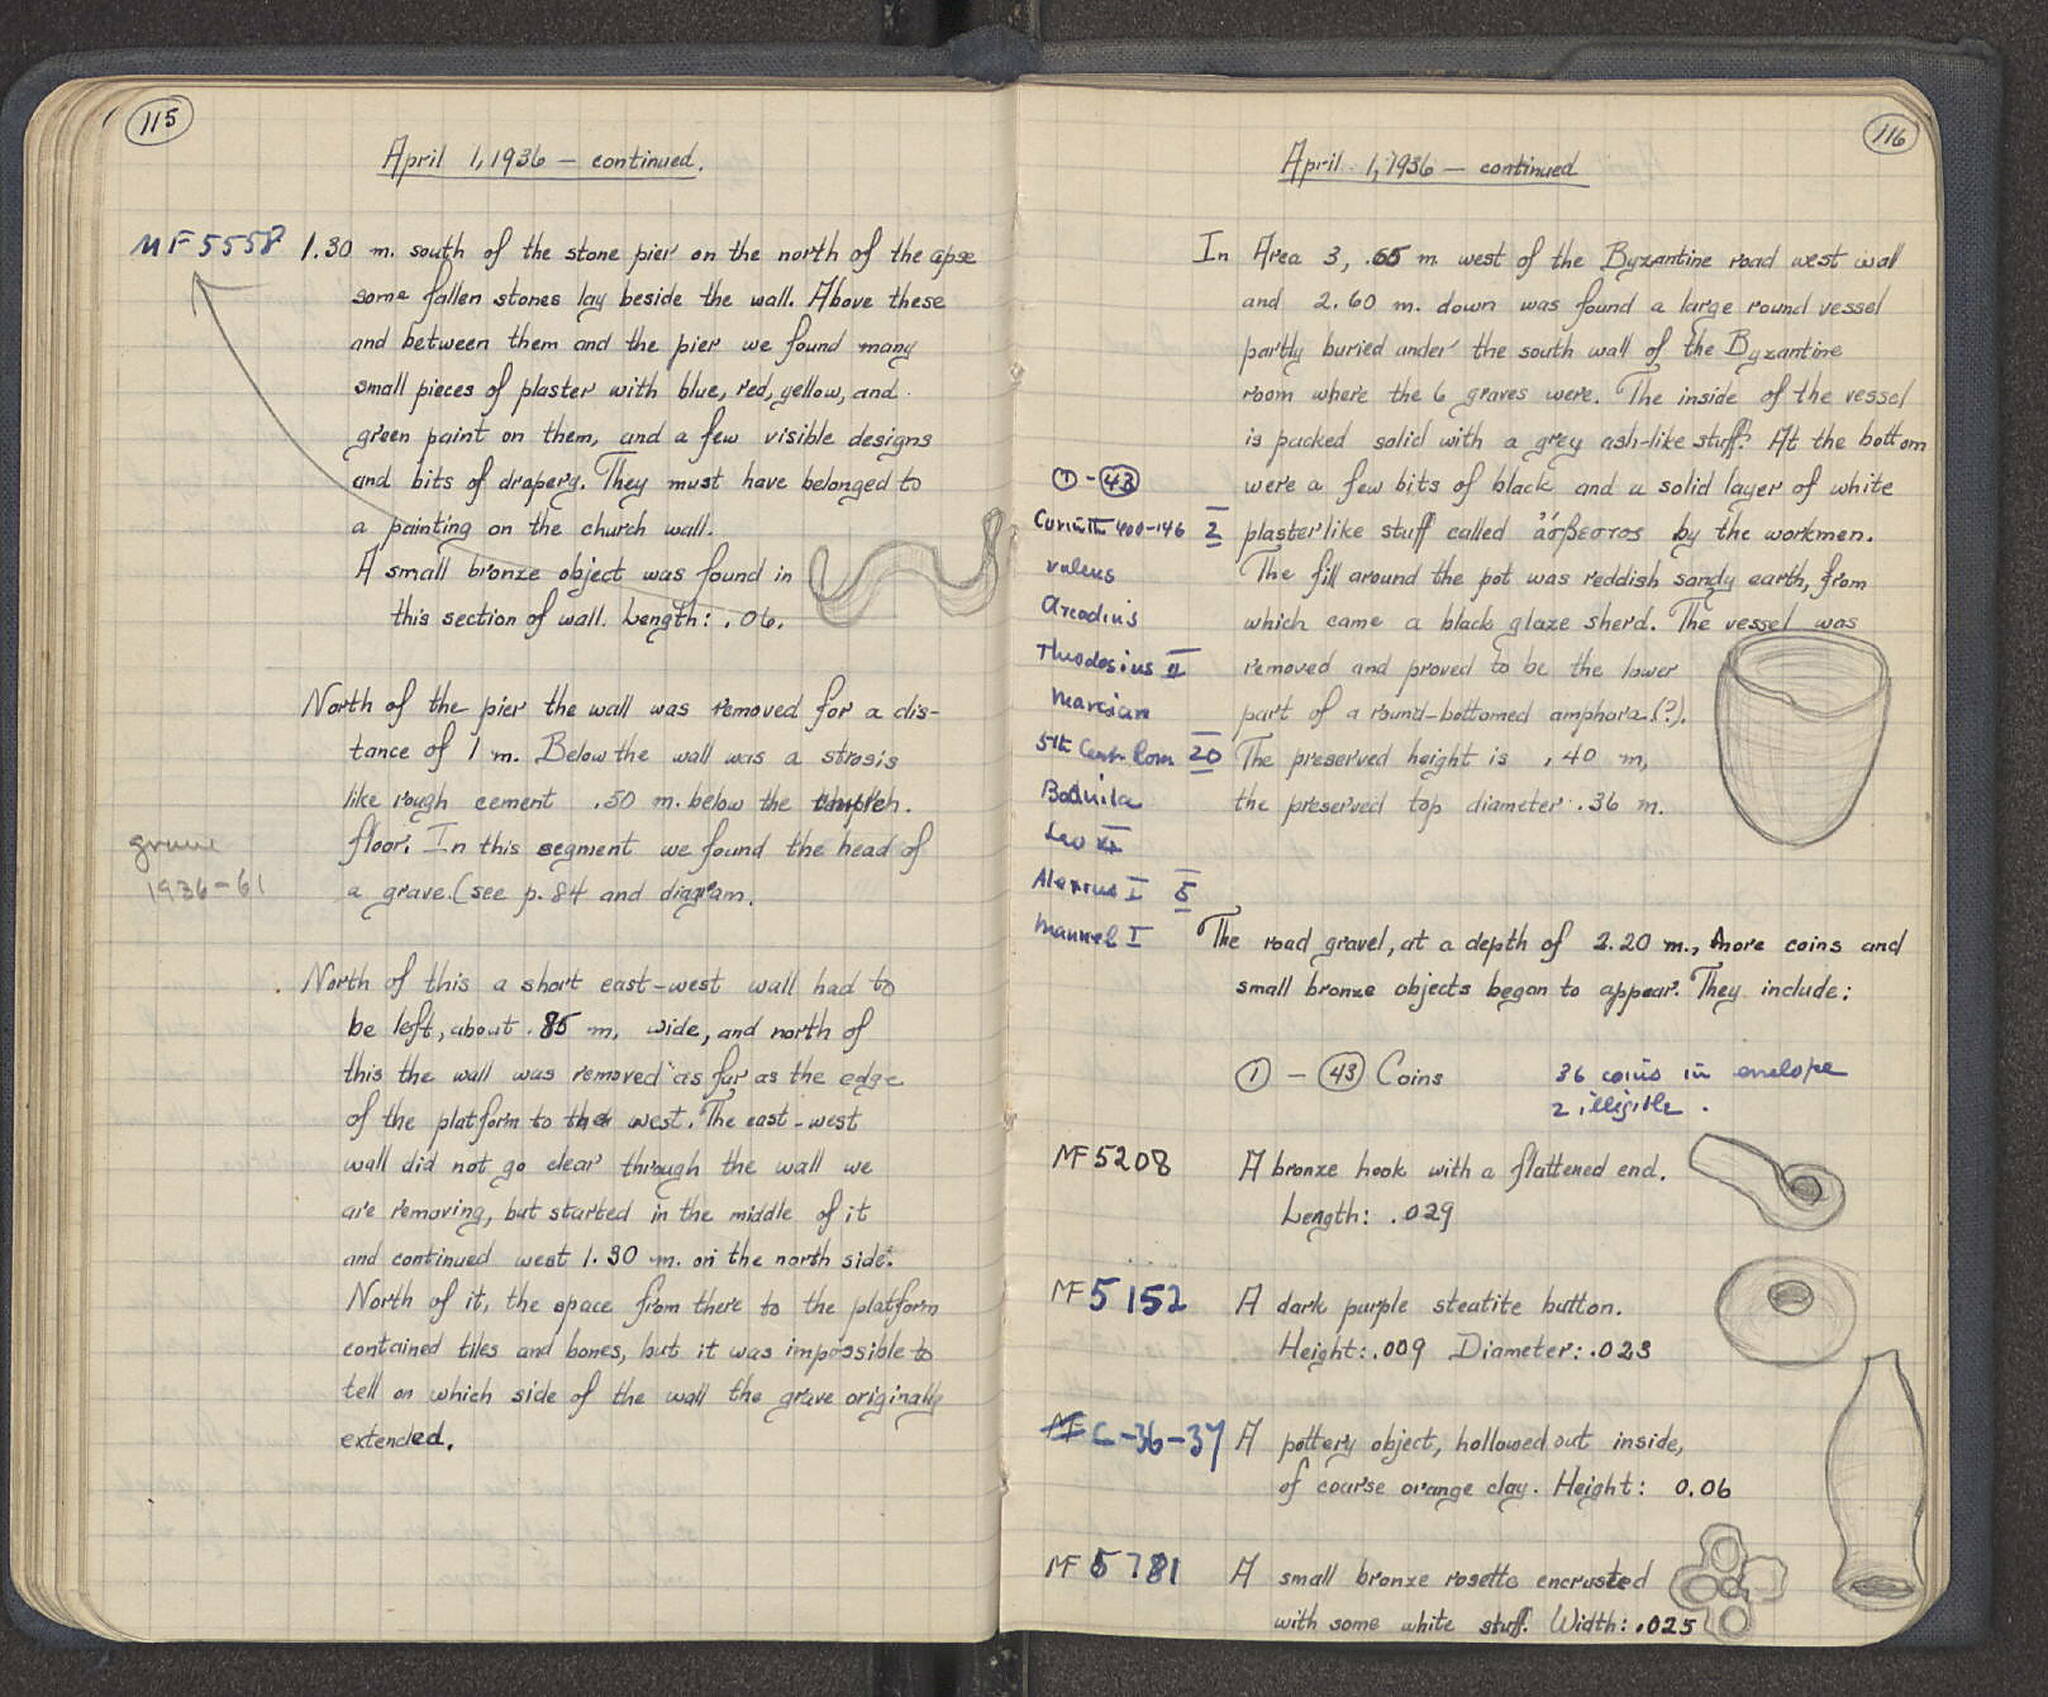 115
April 1, 1936 — continued.
MF 5558 1.30 m. south of the stone pier on the north of the apse
some fallen stones lay beside the wall. Above these
and between them and the pier we found many
small pieces of plaster with blue, red, yellow, and
green paint on them, and a few visible designs
and bits of drapery. They must have belonged to
a painting on the church wall.
A small bronze object was found in
this section of wall. Length: .06.
North of the pier the wall was removed for a dis-
tance of 1 m. Below the wall was a strosis
like rough cement .50 m. below the church
floor. In this segment we found the head of
a grave. (see p. 84 and diagram.
grave
1936-61
North of this a short east-west wall had to
be left, about .85 m. wide, and north of
this the wall was removed as far as the edge
of the platform to the west. The east-west
wall did not go clear through the wall we
are removing, but started in the middle of it
and continued west 1.30 m. on the north side.
North of it, the space from there to the platform
contained tiles and bones, but it was impossible to
tell on which side of the wall the grave originally
extended.
116
April 1, 1936 — continued
In Area 3, .65 m west of the Byzantine road west wall
and 2.60 m. down was found a large round vessel
partly buried under the south wall of the Byzantine
room where the 6 graves were. The inside of the vessel
is packed solid with a grey ash-like stuff. At the bottom
were a few bits of black and a solid layer of white
plasterlike stuff called ἄσβεστος by the workmen.
The fill around the pot was reddish sandy earth, from
which came a black glaze sherd. The vessel was
removed and proved to be the lower
part of a round-bottomed amphora (?).
The preserved height is .40 m,
the preserved top diameter .36 m.
① - ㊸
Corinth 400-146 2
Valens
Arcadius
Theodosius II
Marcian
5th Cent Rom 20
Baduila
Leo VI
Alexius I 5
Manuel I
The road gravel, at a depth of 2.20 m., more coins and
small bronze objects began to appear. They include:
① - ㊸ Coins 36 coins in envelope
2 illegible.
MF 5208 A bronze hook with a flattened end.
Length: .029
MF 5152 A dark purple steatite button.
Height: .009 Diameter: .023
MF C-36-37 A pottery object, hollowed out inside,
of coarse orange clay. Height: 0.06
MF 5781 A small bronze rosette encrusted
with some white stuff. Width: .025